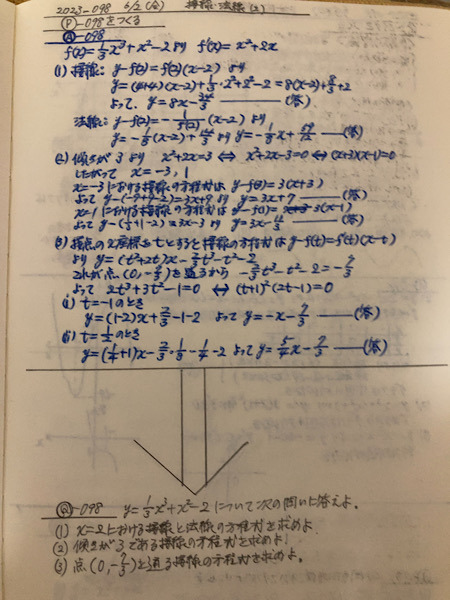 2023-098 6/2(金) 接線・法線(2)
(P)-098をつくる
(A)-098
f(x)=1/3x³+x²-2より f'(x)=x²+2x
(1) 接線: y-f(2)=f'(2)(x-2) より
y=(4+4)(x-2)+1/3・2³+2²-2=8(x-2)+8/3+2
よって、y=8x-34/3 ――(答)
法線: y-f(2)=-1/f'(2)(x-2) より
y=-1/8(x-2)+14/3 より y=-1/8x+ ――(答)
(2) 傾きが3より x²+2x=3 ⇔ x²+2x-3=0 ⇔ (x+3)(x-1)=0
したがって x=-3, 1
x=-3における接線の方程式は y-f(-3)=3(x+3)
よって y-(-9+9-2)=3x+9より y=3x+7 ――(答)
x=1における接線の方程式は y-f(1)= 3(x-1)
よって y-(1/3+1-2)=3x-3より y=3x-11/3 ――(答)
(3) 接点のx座標をtとすると接線の方程式は y-f(t)=f'(t)(x-t)
より y=(t²+2t)x-2/3t³-t²-2
これが点(0,-7/3)を通るから -2/3t³-t²-2=-7/3
よって 2t³+3t²-1=0 ⇔ (t+1)²(2t-1)=0
(i) t=-1のとき
y=(1-2)x+2/3-1-2 よって y=-x-7/3 ――(答)
(ii) t=1/2のとき
y=(1/4+1)x-2/3・1/8-1/4-2 よって y=5/4x-7/3 ――(答)
(Q)-098 y=1/3x³+x²-2 について次の問いに答えよ.
(1) x=2における接線と法線の方程式を求めよ.
(2) 傾きが3である接線の方程式を求めよ.
(3) 点(0,-7/3)を通る接線の方程式を求めよ.